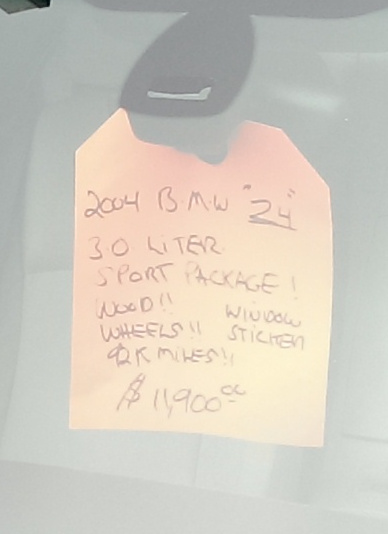 2004 B.M.W "Z4"
3.0 LITER
SPORT PACKAGE!
WOOD!! WINDOW
WHEELS!! STICKER
92K MILES!!
$ 11,900⁰⁰